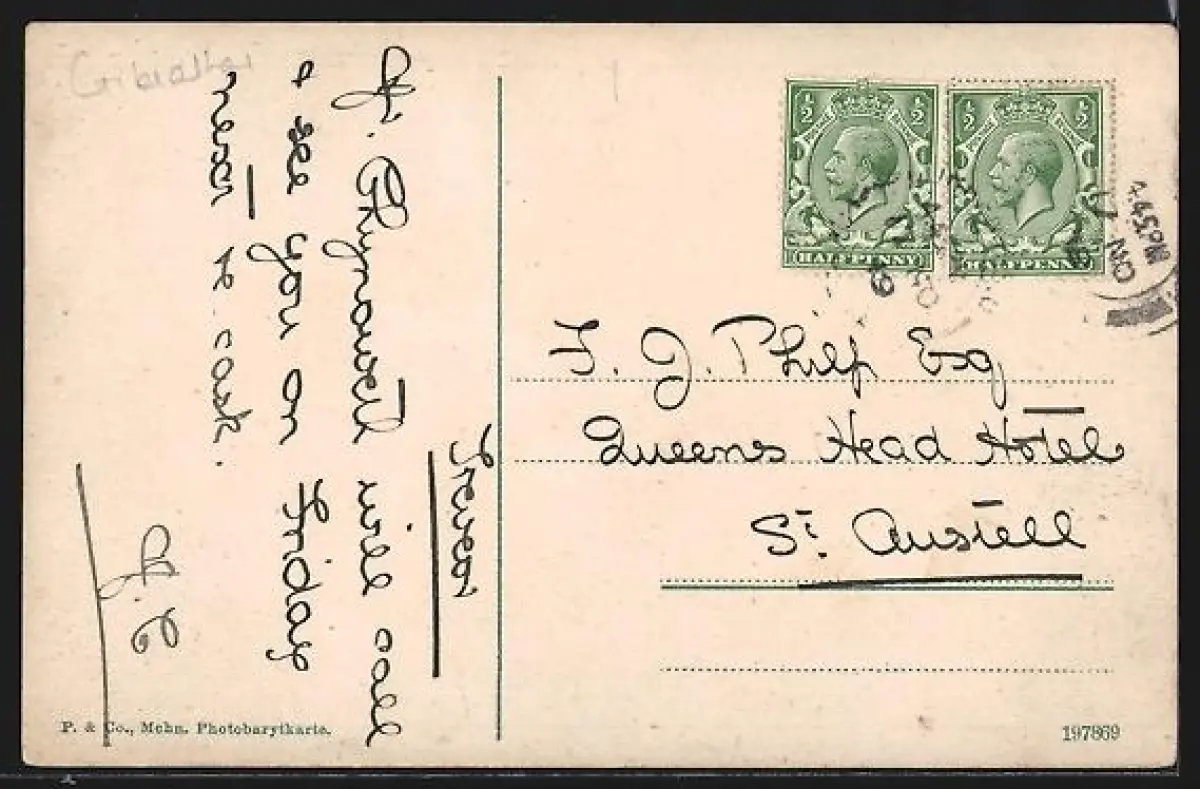 Gibraltar
Trevean
Mr. will call
& see you on Friday
never
H. C
½ ½ ½ ½
HALFPENNY HALFPENNY
4.45PM
17
F. J. Philp Esq
Queens Head Hotel
St. Austell
P. & Co., Mchn. Photobarytkarte.
197869